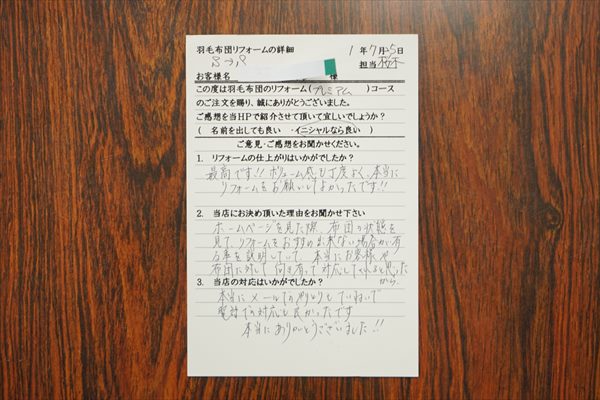 羽毛布団リフォームの詳細 1年7月25日
担当
お客様名 様
この度は羽毛布団のリフォーム(プレミアム)コース
のご注文を賜り、誠にありがとうございました。
ご感想を当HPで紹介させて頂いて宜しいでしょうか?
( 名前を出しても良い ・イニシャルなら良い )
ご意見・ご感想をお聞かせください。
1. リフォームの仕上がりはいかがでしたか?
最高です!!ボリューム感も丁度よく、本当に
リフォームをお願いしてよかったです!!
2. 当店にお決め頂いた理由をお聞かせ下さい
ホームページを見た際、布団の状態を
見て、リフォームをおすすめ出来ない場合が有
る事を説明していて、本当にお客様や
布団に対して向き有って対応してくれると思った
から。
3. 当店の対応はいかがでしたか?
本当にメールでのやりとりもていねいで
電話での対応も良かったです
本当にありがとうございました!!